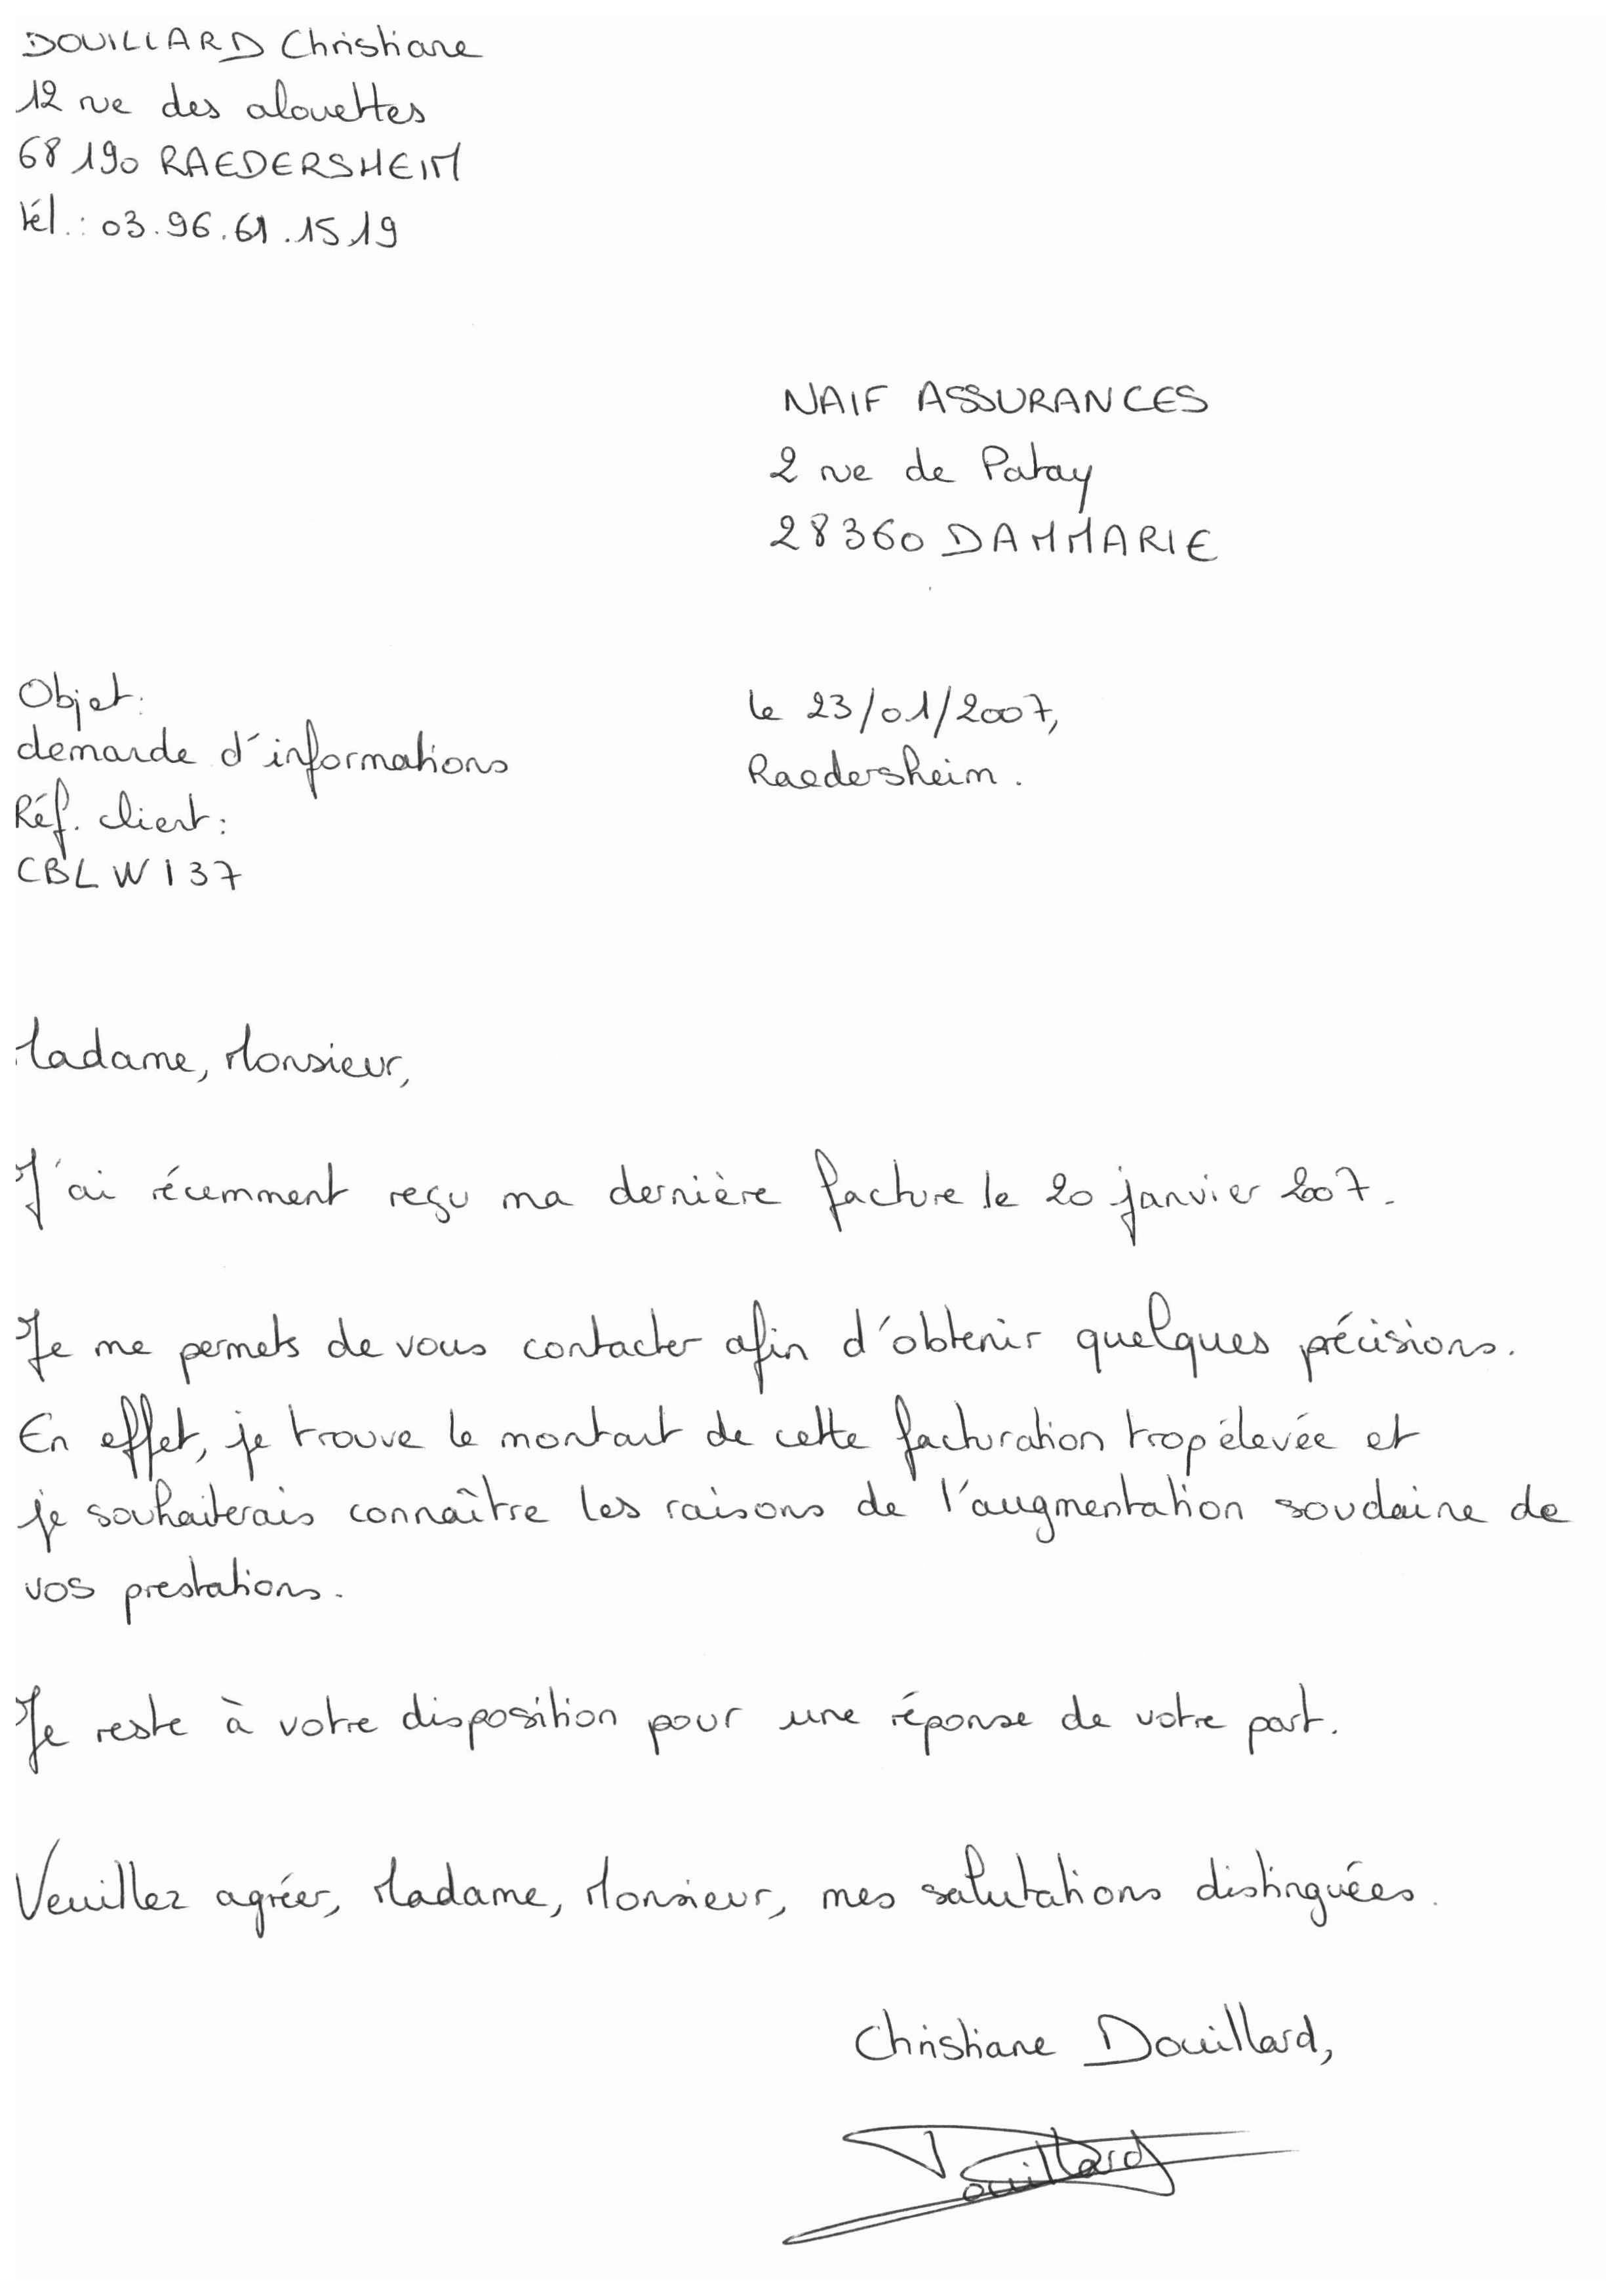 DOUILLARD Christiane
12 rue des alouettes
68190 RAEDERSHEIM
tél.: 03.96.61.15.19
NAIF ASSURANCES
2 rue de Patay
28360 DAMMARIE
Objet:
demande d'informations
Réf. client:
CBLWI37
le 23/01/2007,
Raedersheim.
Madame, Monsieur,
J'ai récemment reçu ma dernière facture le 20 janvier 2007.
Je me permets de vous contacter afin d'obtenir quelques précisions.
En effet, je trouve le montant de cette facturation trop élevée et
je souhaiterais connaître les raisons de l'augmentation soudaine de
vos prestations.
Je reste à votre disposition pour une réponse de votre part.
Veuillez agréer, Madame, Monsieur, mes salutations distinguées.
Christiane Douillard,
Douillard